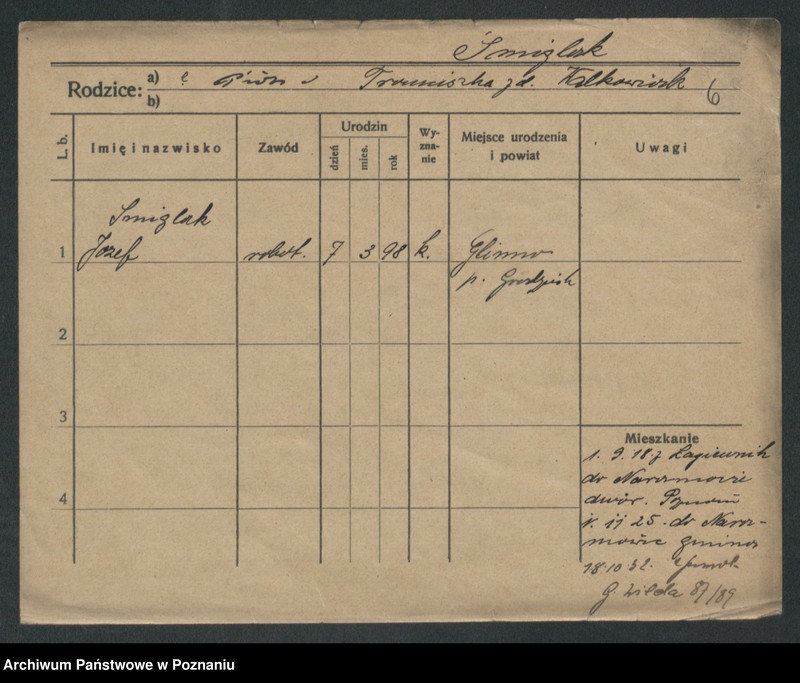 Śmiglak
Rodzice: a) Piotr i Franciszka zd. 6
b)
L. b. Imię i nazwisko Zawód Urodzin dzień mies. rok Wy-zna-nie Miejsce urodzenia i powiat Uwagi
Śmiglak
1 Józef robot. 7 3 98 k. Glinno
p. Grodzisk
2
3
Mieszkanie
1. 9. 18. z Łagiewnik
do Naramowic
4 dwór. Poznań
1. 11 25. do Nara-
mowic gmina
18.10.32.
G. Wilda 87/89
Archiwum Państwowe w Poznaniu